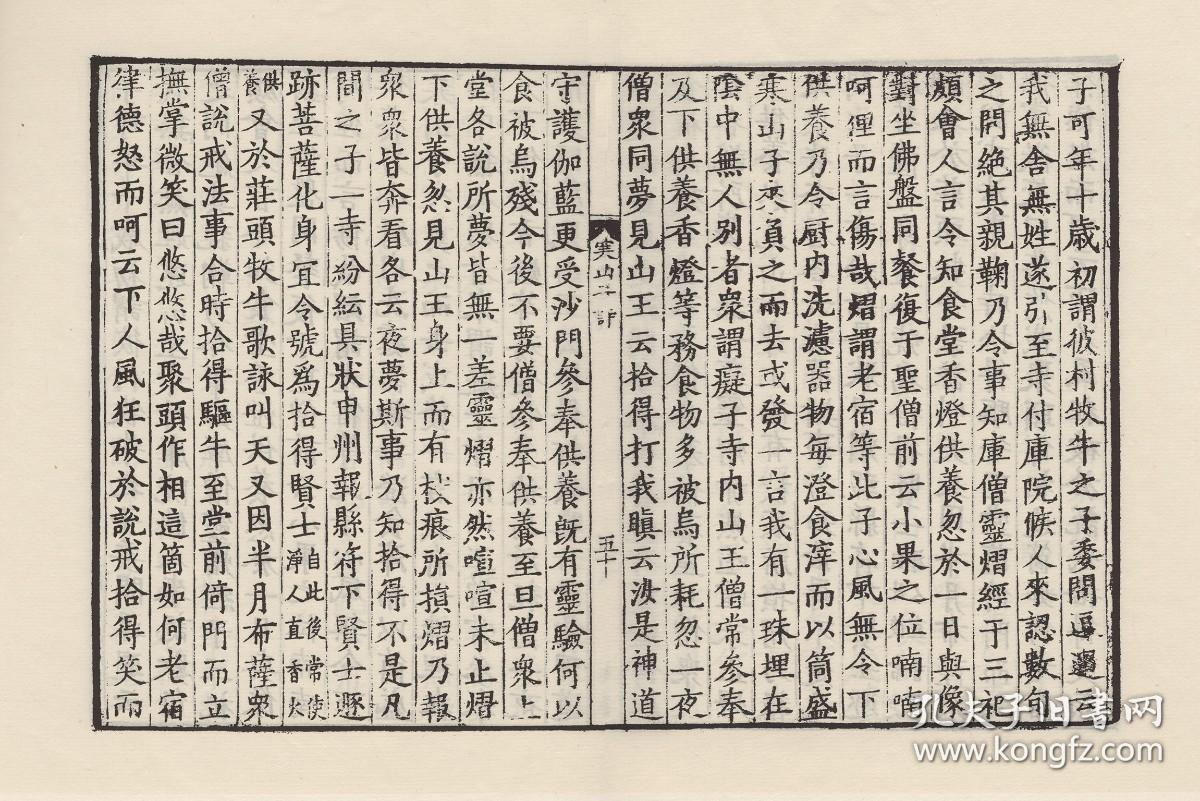 子可年十歲初謂彼村牧牛之子委問逗遛云
我無舍無姓遂引至寺付庫院候人來認數旬
之間絶其親鞠乃令事知庫僧靈熠經于三祀
頗會人言令知食堂香燈供養忽於一日與像
對坐佛盤同餐復于聖僧前云小果之位喃喃
呵俚而言傷哉熠謂老宿等此子心風無令下
供養乃令厨内洗濾器物每澄食滓而以筒盛
寒山子來負之而去或發一言我有一珠埋在
陰中無人別者衆謂癡子寺内山王僧常參奉
及下供養香燈等務食物多被烏所耗忽一夜
僧衆同夢見山王云拾得打我瞋云汝是神道
寒山子詩
五十
守護伽藍更受沙門參奉供養既有靈驗何以
食被烏殘今後不要僧參奉供養至旦僧衆上
堂各説所夢皆無一差靈熠亦然喧喧未止熠
下供養忽見山王身上而有杖痕所損熠乃報
衆衆皆奔看各云夜夢斯事乃知拾得不是凡
間之子一寺紛紜具狀申州報縣符下賢士遯
跡菩薩化身宜令號爲拾得賢士自此後常使淨人直香火
供養又於莊頭牧牛歌詠叫天又因半月布薩衆
僧説戒法事合時拾得驅牛至堂前倚門而立
撫掌微笑曰悠悠哉聚頭作相這箇如何老宿
律德怒而呵云下人風狂破於説戒拾得笑而
孔夫子旧书网
www.kongfz.com